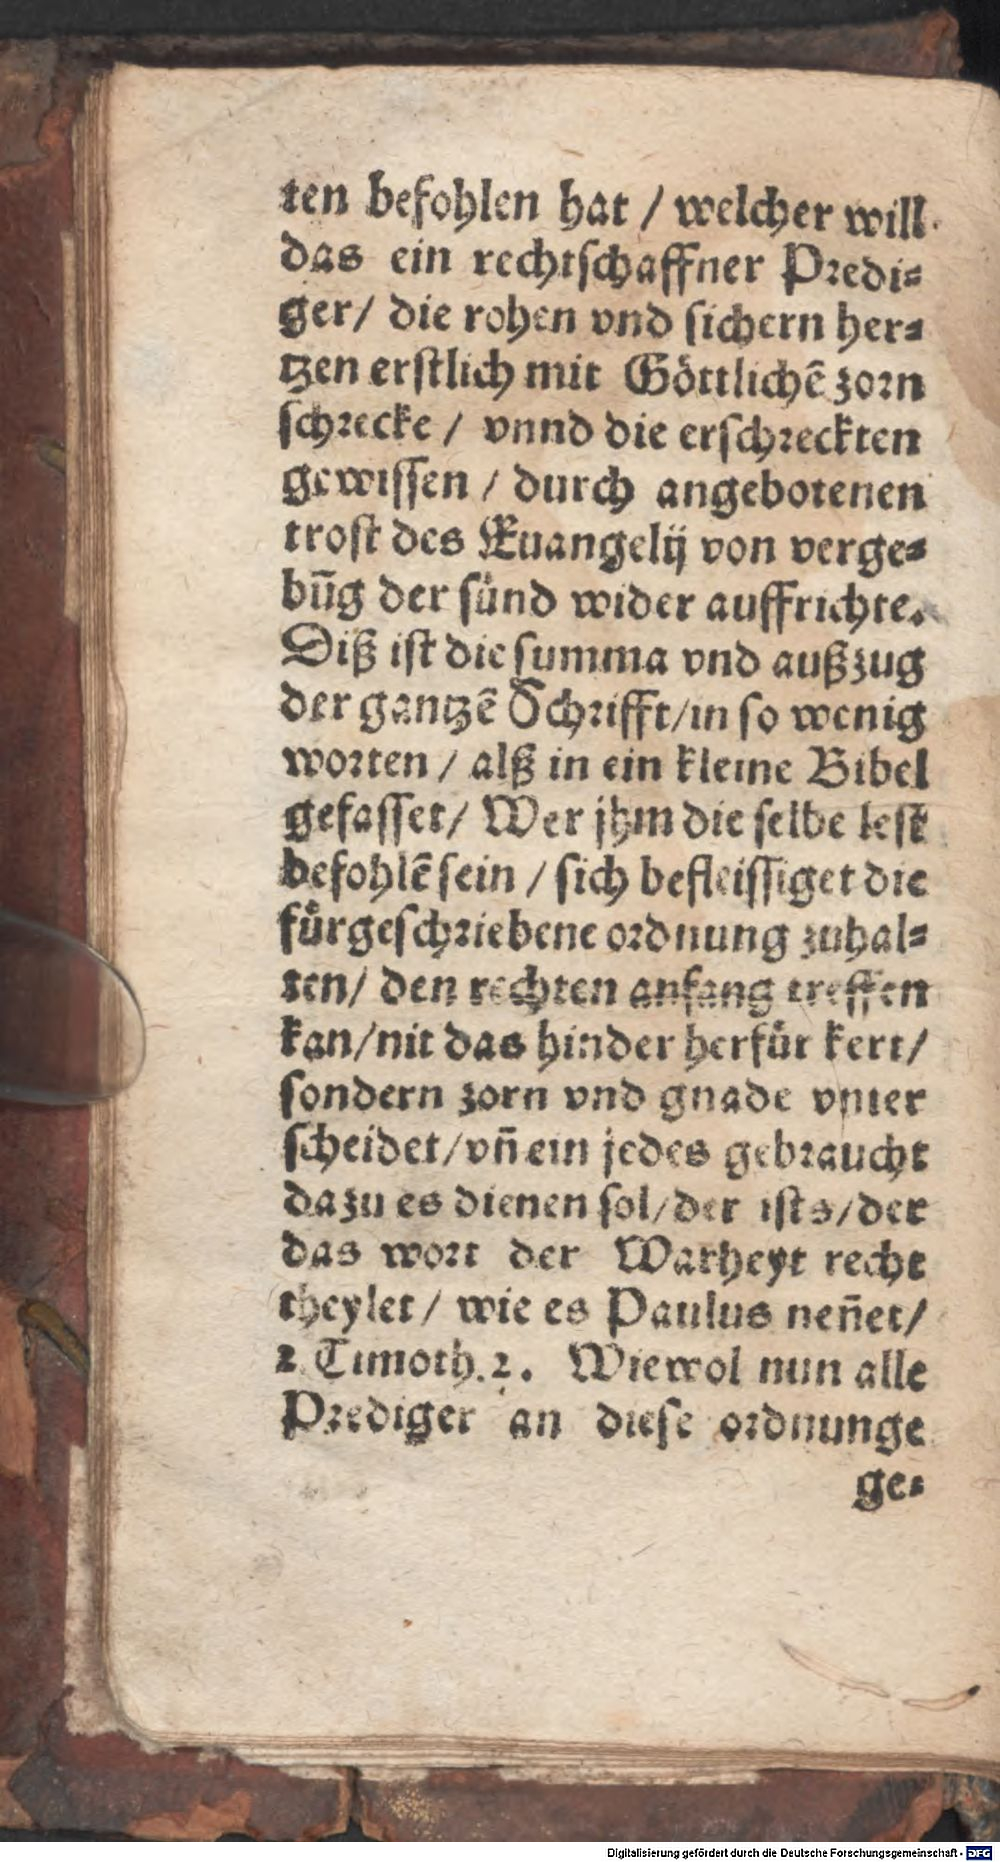 ten befohlen hat / welcher will
das ein rechtſchaffner Predi⸗
ger/ die rohen vnd ſichern her⸗
tzen erſtlich mit Göttlichē zorn
ſchrecke / vnnd die erſchreckten
gewiſſen / durch angebotenen
troſt des Euangelij von verge⸗
būg der ſünd wider auffrichte.
Diß iſt die ſumma vnd außzug
der gantzē Schrifft/in ſo wenig
worten / alß in ein kleine Bibel
gefaſſet/ Wer jhm die ſelbe leſt
befohlē ſein / ſich befleiſſiget die
fürgeſchriebene ordnung zuhal⸗
ten/ den rechten anfang treffen
kan/nit das hinder herfür kert/
ſondern zorn vnd gnade vnter
ſcheidet/vn̄ ein jedes gebraucht
dazu es dienen ſol/der iſts/der
das wort der Warheyt recht
theylet/ wie es Paulus nen̄et/
2 Timoth.2. Wiewol nun alle
Prediger an dieſe ordnunge
ge⸗
Digitalisierung gefördert durch die Deutsche Forschungsgemeinschaft - DFG